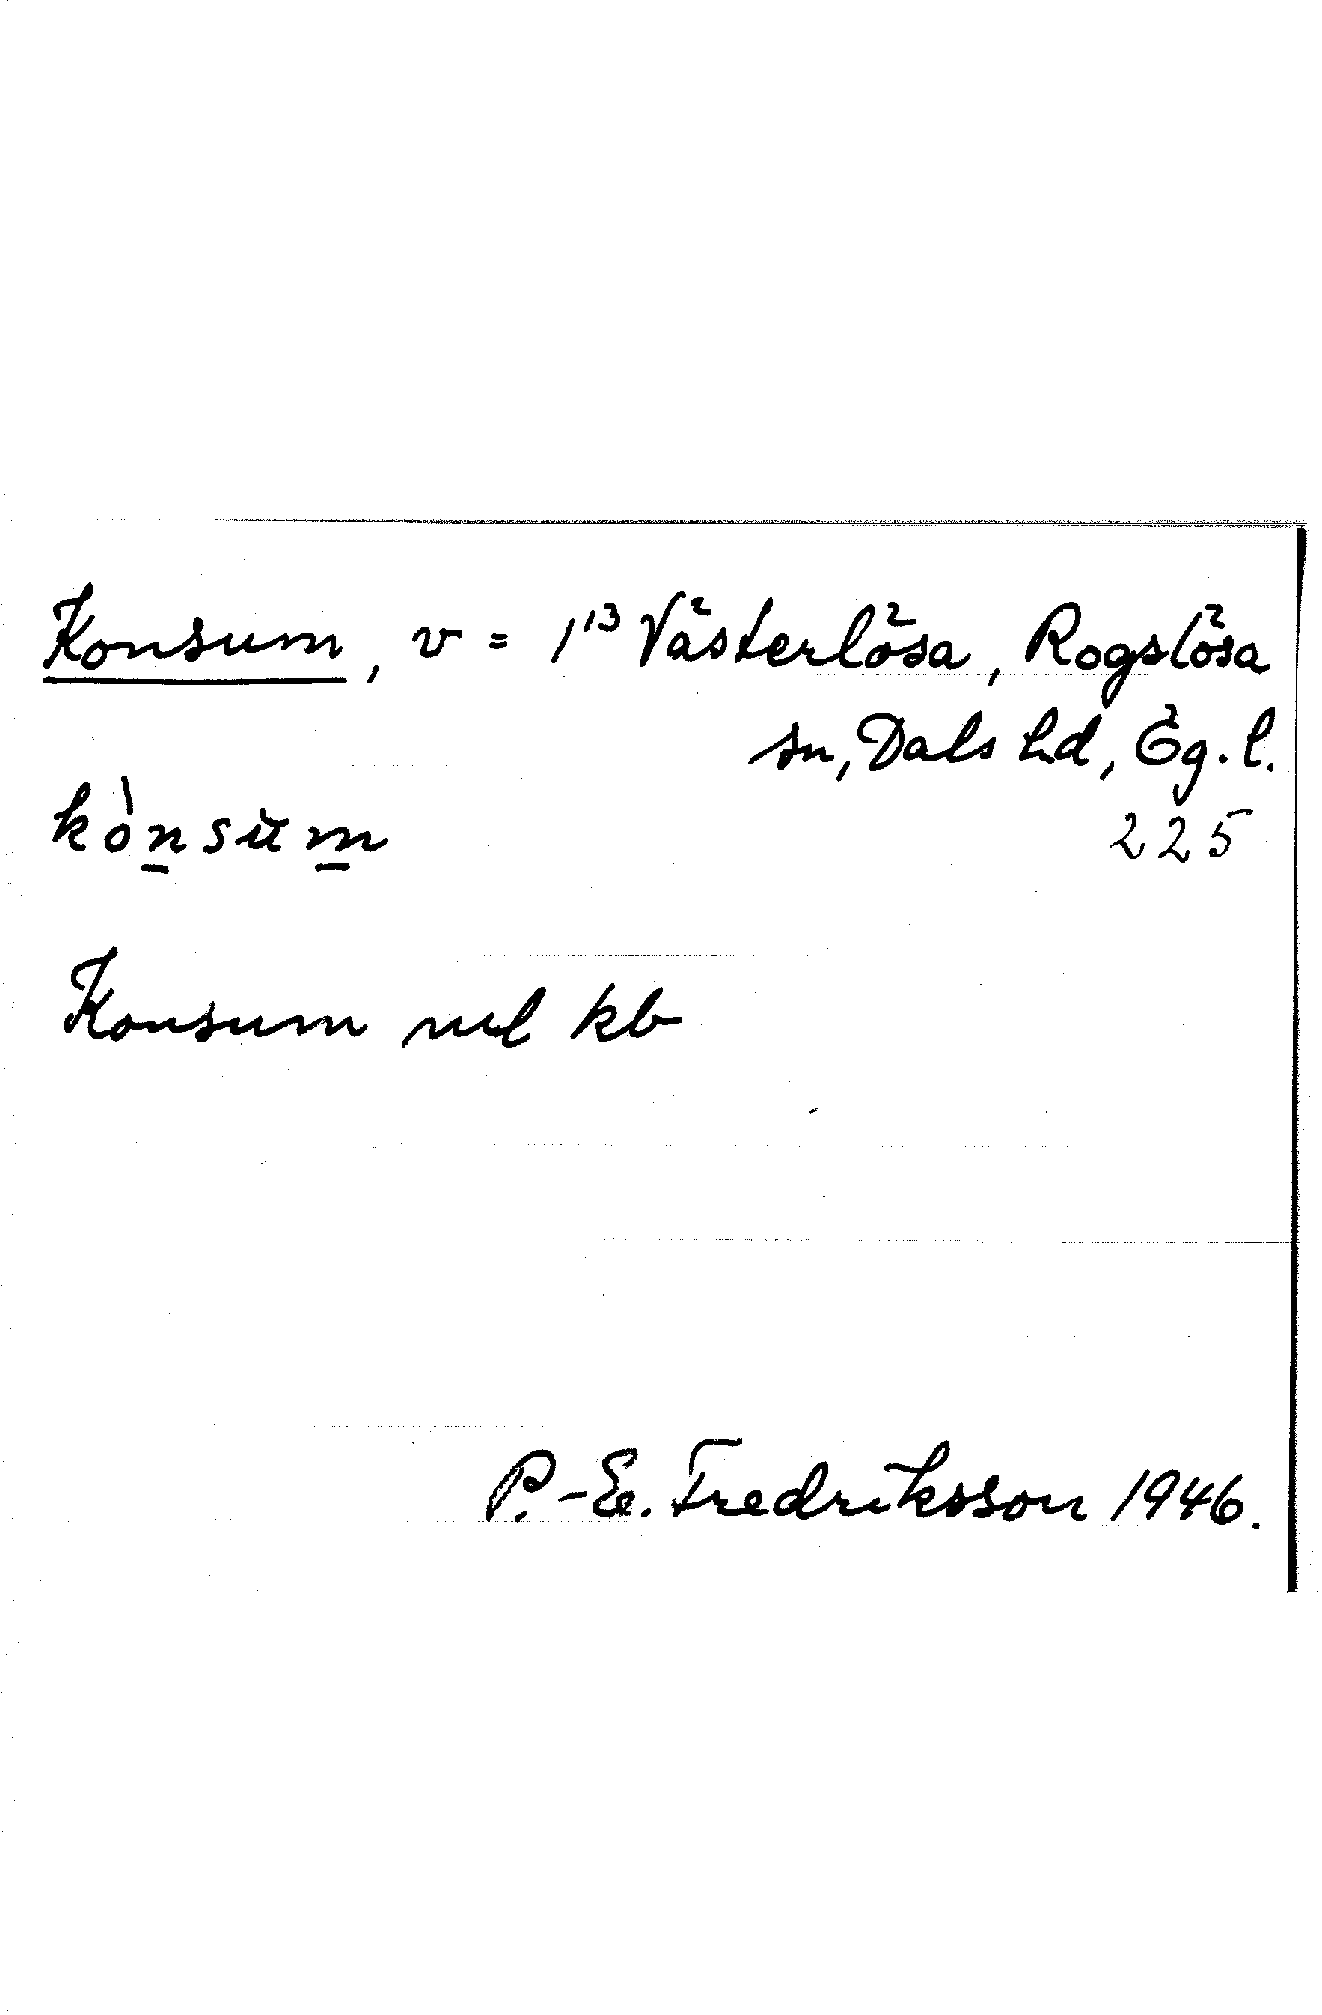 Konsum, v = 1¹³ Västerlösa, Rogslösa
sn, Dals hd, Ög. l.
kònsùm
225
Konsum nel kb
P.-E. Fredriksson 1946.